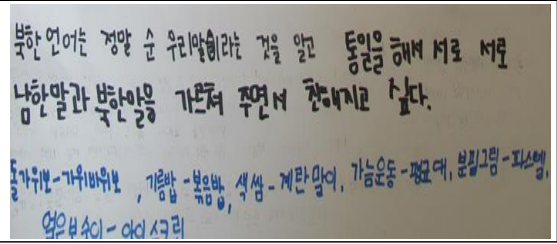 북한 언어는 정말 순 우리말이라는 것을 알고 통일을 해서 서로 서로
남한말과 북한말을 가르쳐 주면서 친해지고 싶다.
돌가위보-가위바위보, 기름밥-볶음밥, 색쌈-계란말이, 가늠운동-평균대, 분필그림-파스텔,
얼은보숭이-아이스크림